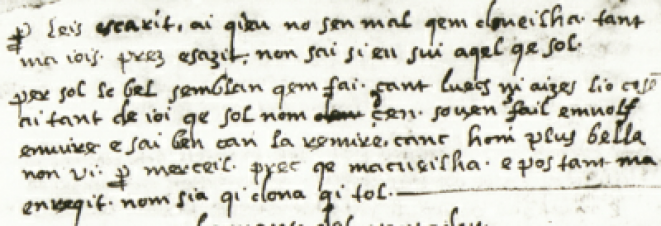 ꝑ leis escarit. ai qieu no sen mal qem doueilha. tant
ma iois. prez esazit. non sai si eu sui aqel qe sol.
per sol lo bel semblan qem fai. cant luecs ni aizes lio
aitant de ioi qe sol nom çen. souen fail emuolf
emuire e sai ben can la remire. canc hom plus bella
non ui. ꝑ merceil. prec qe macueilha. e pos tant ma
enreqit. nom sia qi dona qi tol.